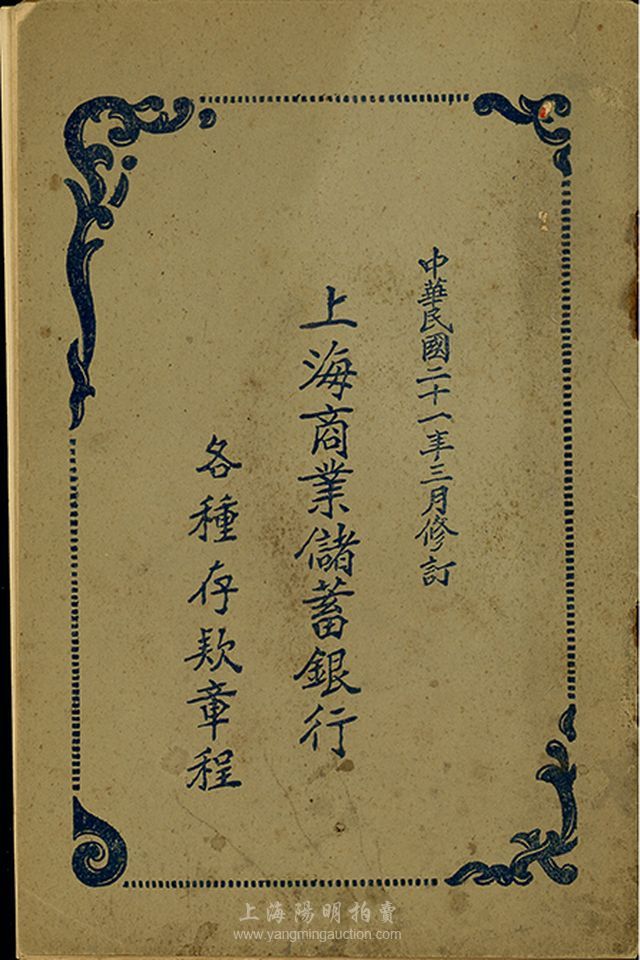 中華民國二十一年三月修訂
上海商業儲蓄銀行
各種存欵章程
上海陽明拍賣
www.yangmingauction.com